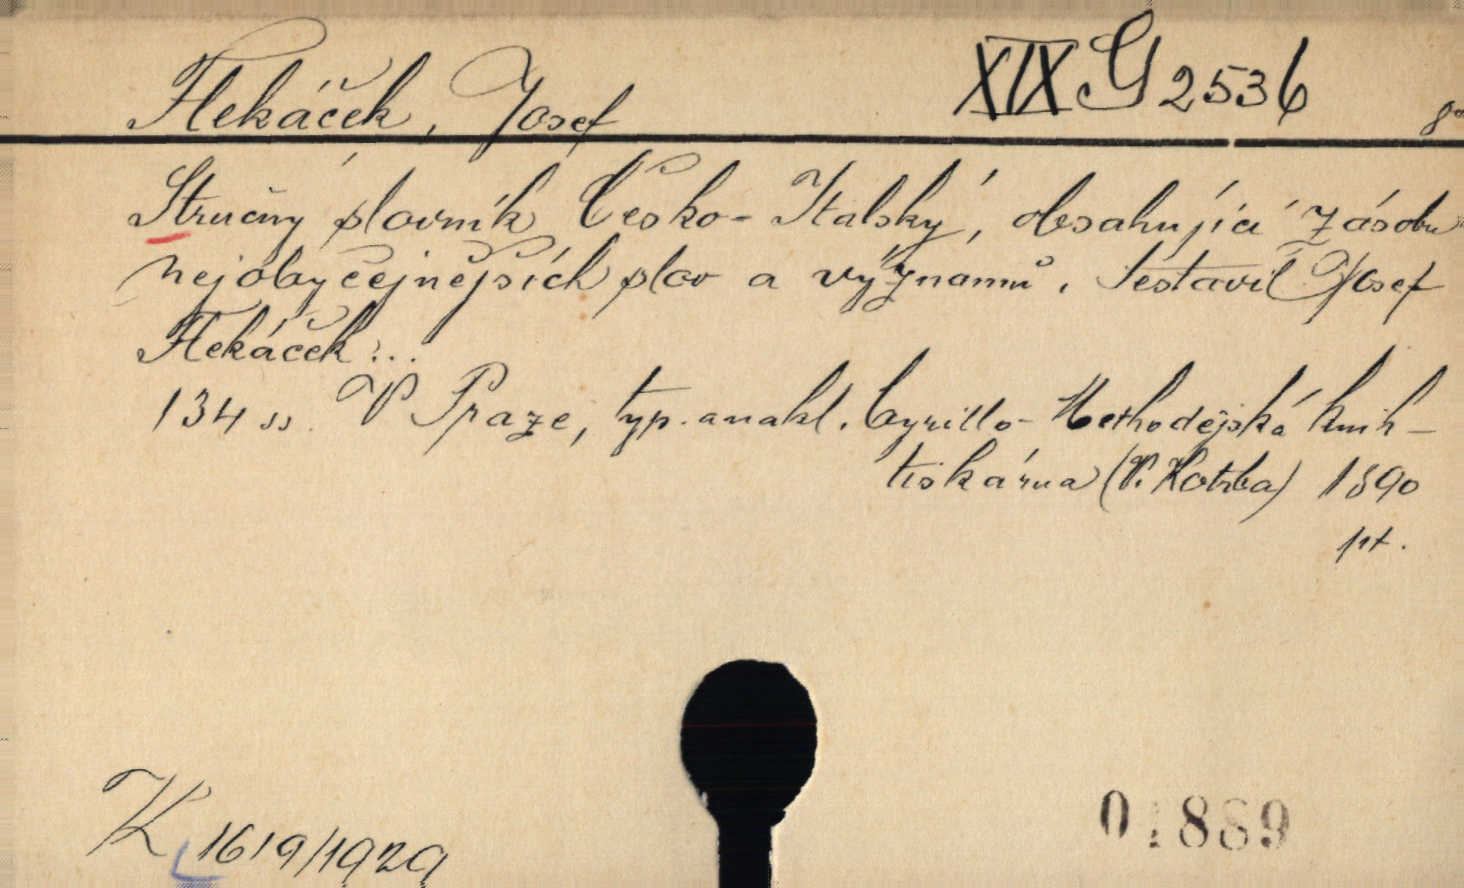 Flekáček, Josef XIX G 2536 8°
Stručný slovník Česko-Italský, obsahující zásobu
nejobyčejnějších slov a významů. Sestavil Josef
Flekáček...
134 ss. V Praze, typ. a nakl. Cyrillo-Methodějská knih-
tiskárna (V. Kotrba) 1890
K 1619/1929
889